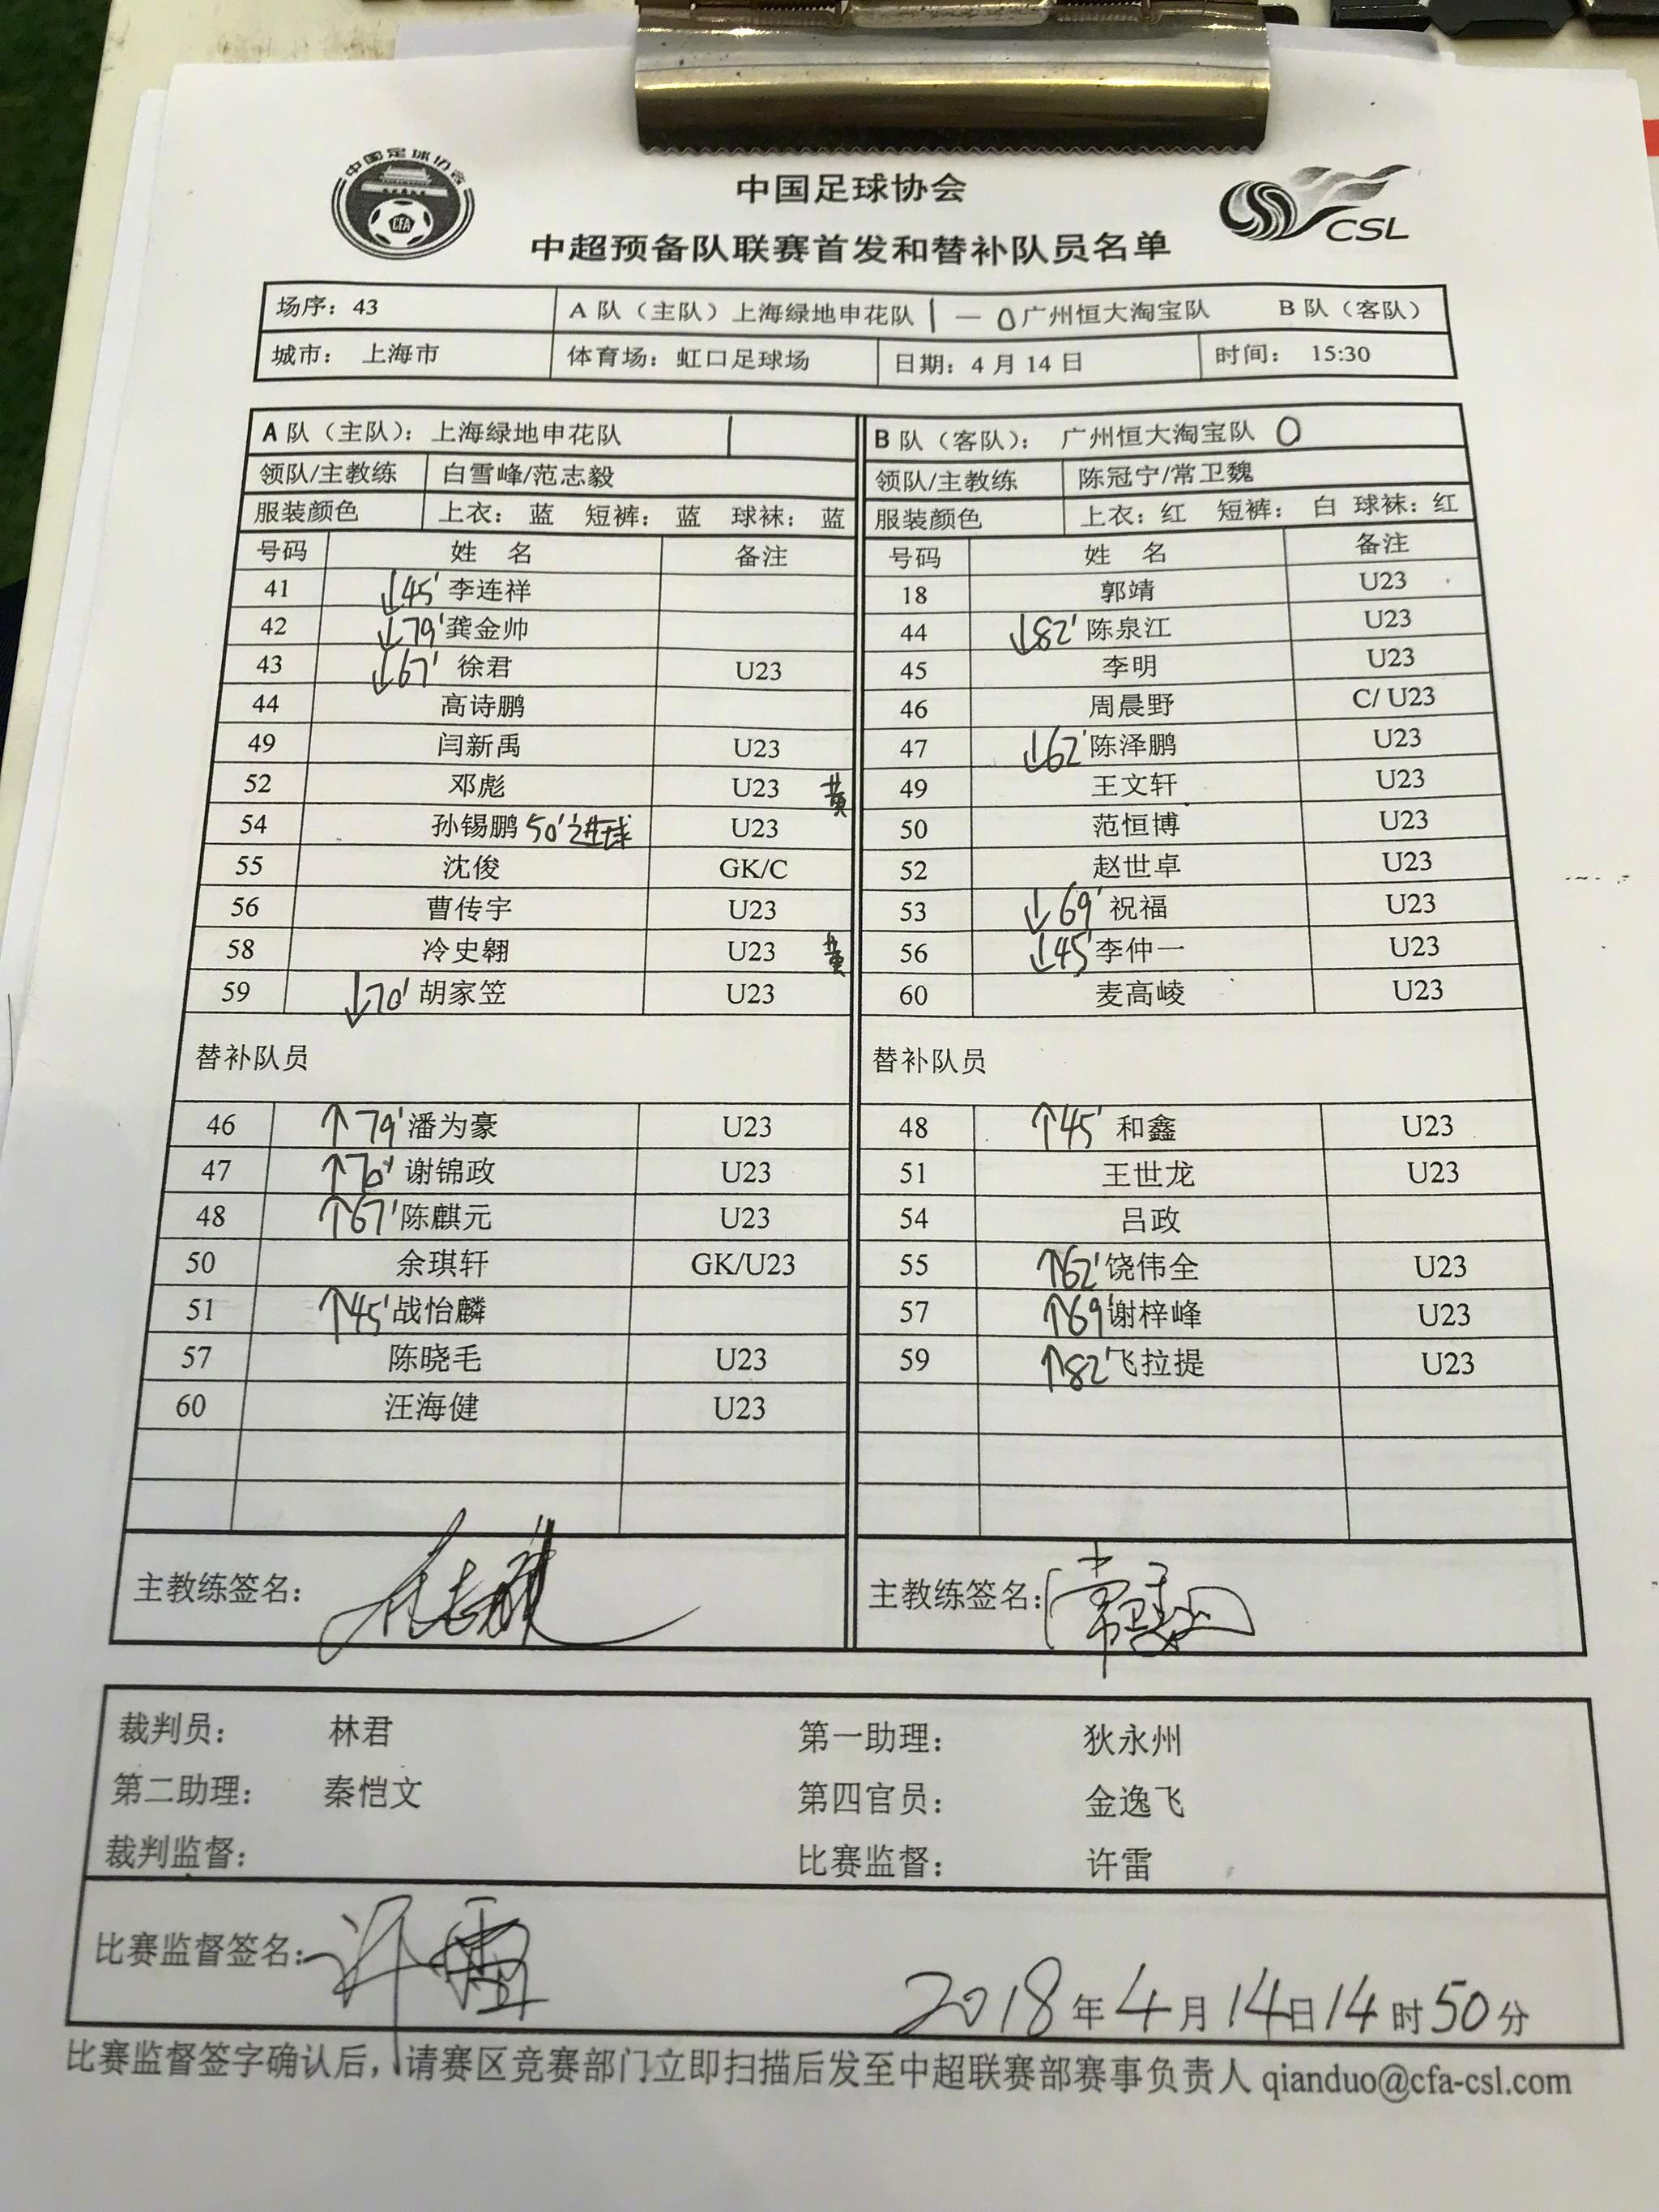 中国足球协会
CFA
CSL
中国足球协会
中超预备队联赛首发和替补队员名单
场序：43 A 队（主队）上海绿地申花队 1 — 0 广州恒大淘宝队 B 队（客队）
城市： 上海市 体育场：虹口足球场 日期：4 月 14 日 时间： 15:30
A 队（主队）：上海绿地申花队 1 B 队（客队）： 广州恒大淘宝队 0
领队/主教练 白雪峰/范志毅 领队/主教练 陈冠宁/常卫魏
服装颜色 上衣： 蓝 短裤： 蓝 球袜： 蓝 服装颜色 上衣：红 短裤： 白 球袜：红
号码 姓 名 备注 号码 姓 名 备注
41 ↓45' 李连祥 18 郭靖 U23
42 ↓79' 龚金帅 44 ↓82' 陈泉江 U23
43 ↓67' 徐君 U23 45 李明 U23
44 高诗鹏 46 周晨野 C/ U23
49 闫新禹 U23 47 ↓62' 陈泽鹏 U23
52 邓彪 U23 黄 49 王文轩 U23
54 孙锡鹏 50'进球 U23 50 范恒博 U23
55 沈俊 GK/C 52 赵世卓 U23
56 曹传宇 U23 53 ↓69' 祝福 U23
58 冷史翱 U23 黄 56 ↓45' 李仲一 U23
59 ↓70' 胡家笠 U23 60 麦高崚 U23
替补队员 替补队员
46 ↑79' 潘为豪 U23 48 ↑45' 和鑫 U23
47 ↑70' 谢锦政 U23 51 王世龙 U23
48 ↑67' 陈麒元 U23 54 吕政
50 余琪轩 GK/U23 55 ↑62' 饶伟全 U23
51 ↑45' 战怡麟 57 ↑69' 谢梓峰 U23
57 陈晓毛 U23 59 ↑82' 飞拉提 U23
60 汪海健 U23
主教练签名： 主教练签名：
裁判员： 林君 第一助理： 狄永州
第二助理： 秦恺文 第四官员： 金逸飞
裁判监督： 比赛监督： 许雷
比赛监督签名： 许雷 2018 年 4 月 14 日 14 时 50 分
比赛监督签字确认后，请赛区竞赛部门立即扫描后发至中超联赛部赛事负责人 qianduo@cfa-csl.com